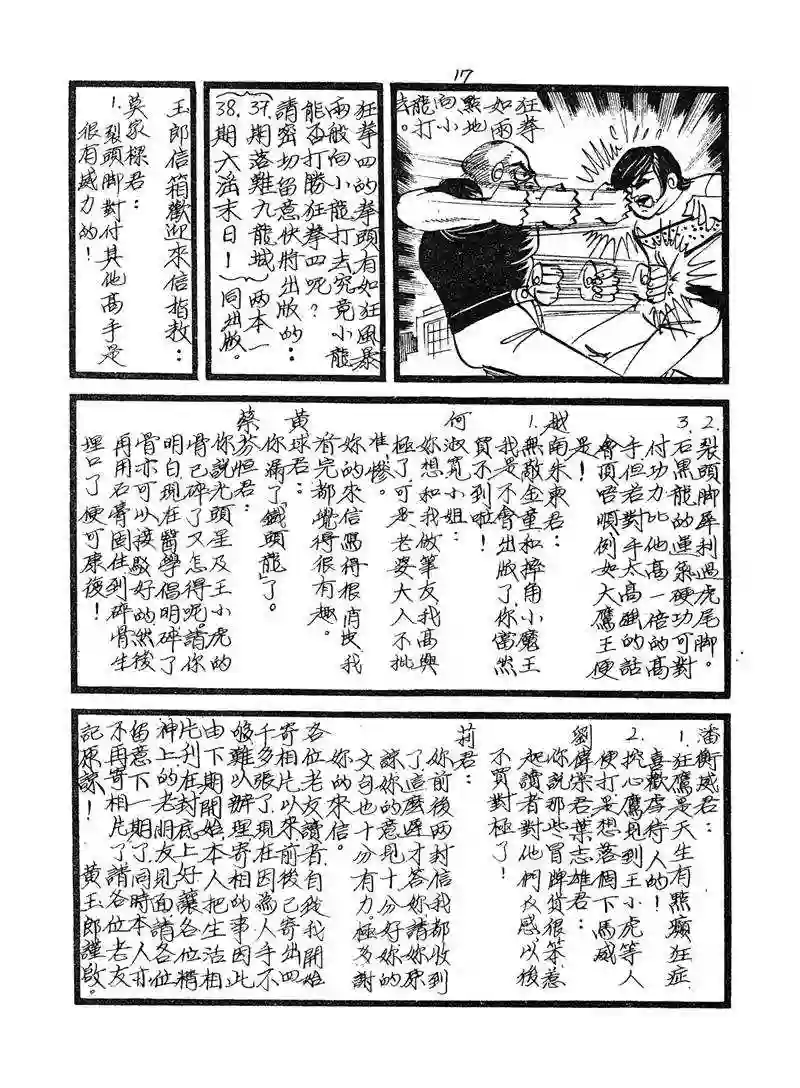 17
狂拳
如雨
點地
向小
龍打
去。
狂拳四的拳頭有如狂風暴
雨般向小龍打去究竟小龍
能否打勝狂拳四呢？
請密切留意快將出版的：
37.期落難九龍城
38.期六滛末日！
兩本一
同出版。
玉郎信箱歡迎來信指教：
莫家樑君：
1.裂頭脚對付其他高手是
很有威力的！
2.裂頭脚犀利過虎尾脚。
3.石黑龍的運氣硬功可對
付功力比他高一倍的高
手但若對手太高強的話
會頂唔順例如大鷹王便
是！
越南朱東君：
1.無敵金童和摔角小魔王
我是不會出版了，你當然
買不到啦！
何淑寬小姐：
妳想和我做筆友我高興
極了可是老婆大人不批
准，慘。
妳的來信寫得很俏皮我
看完都覺得很有趣。
黃球君：
你漏了「鐵頭龍」了。
蔡芬恒君：
你說九頭星及王小虎的
骨已碎了又怎得呢。請你
明白現在醫學倡明碎了
骨亦可以接駁好的然後
再用石膏固住到碎骨生
埋口了便可康復！
潘衡威君：
1.狂鷹是天生有點癲狂症
喜歡虐待人的！
2.挖心鷹見到王小虎等人
便打是想落個下馬威
劉偉棠君葉志雄君：
你說那些冒牌貨很笨惹
起讀者對他們反感以後
不買對極了！
莉君：
妳前後兩封信我都收到
了這麼遲才答妳請妳原
諒妳的意見十分好妳的
文句也十分有力。極多謝
妳的來信。
各位老友讀者，自從我開始
寄相片以來前後已寄出四
千多張了，現在因為人手不
够難以辦理寄相的事因此
由下期開始本人把生活相
片刊在封底上好讓各位精
神上的老朋友見面請各位
留意下一期了同時本人亦
不再寄相片了，請各位老友
記原諒！
黃玉郎謹啟。